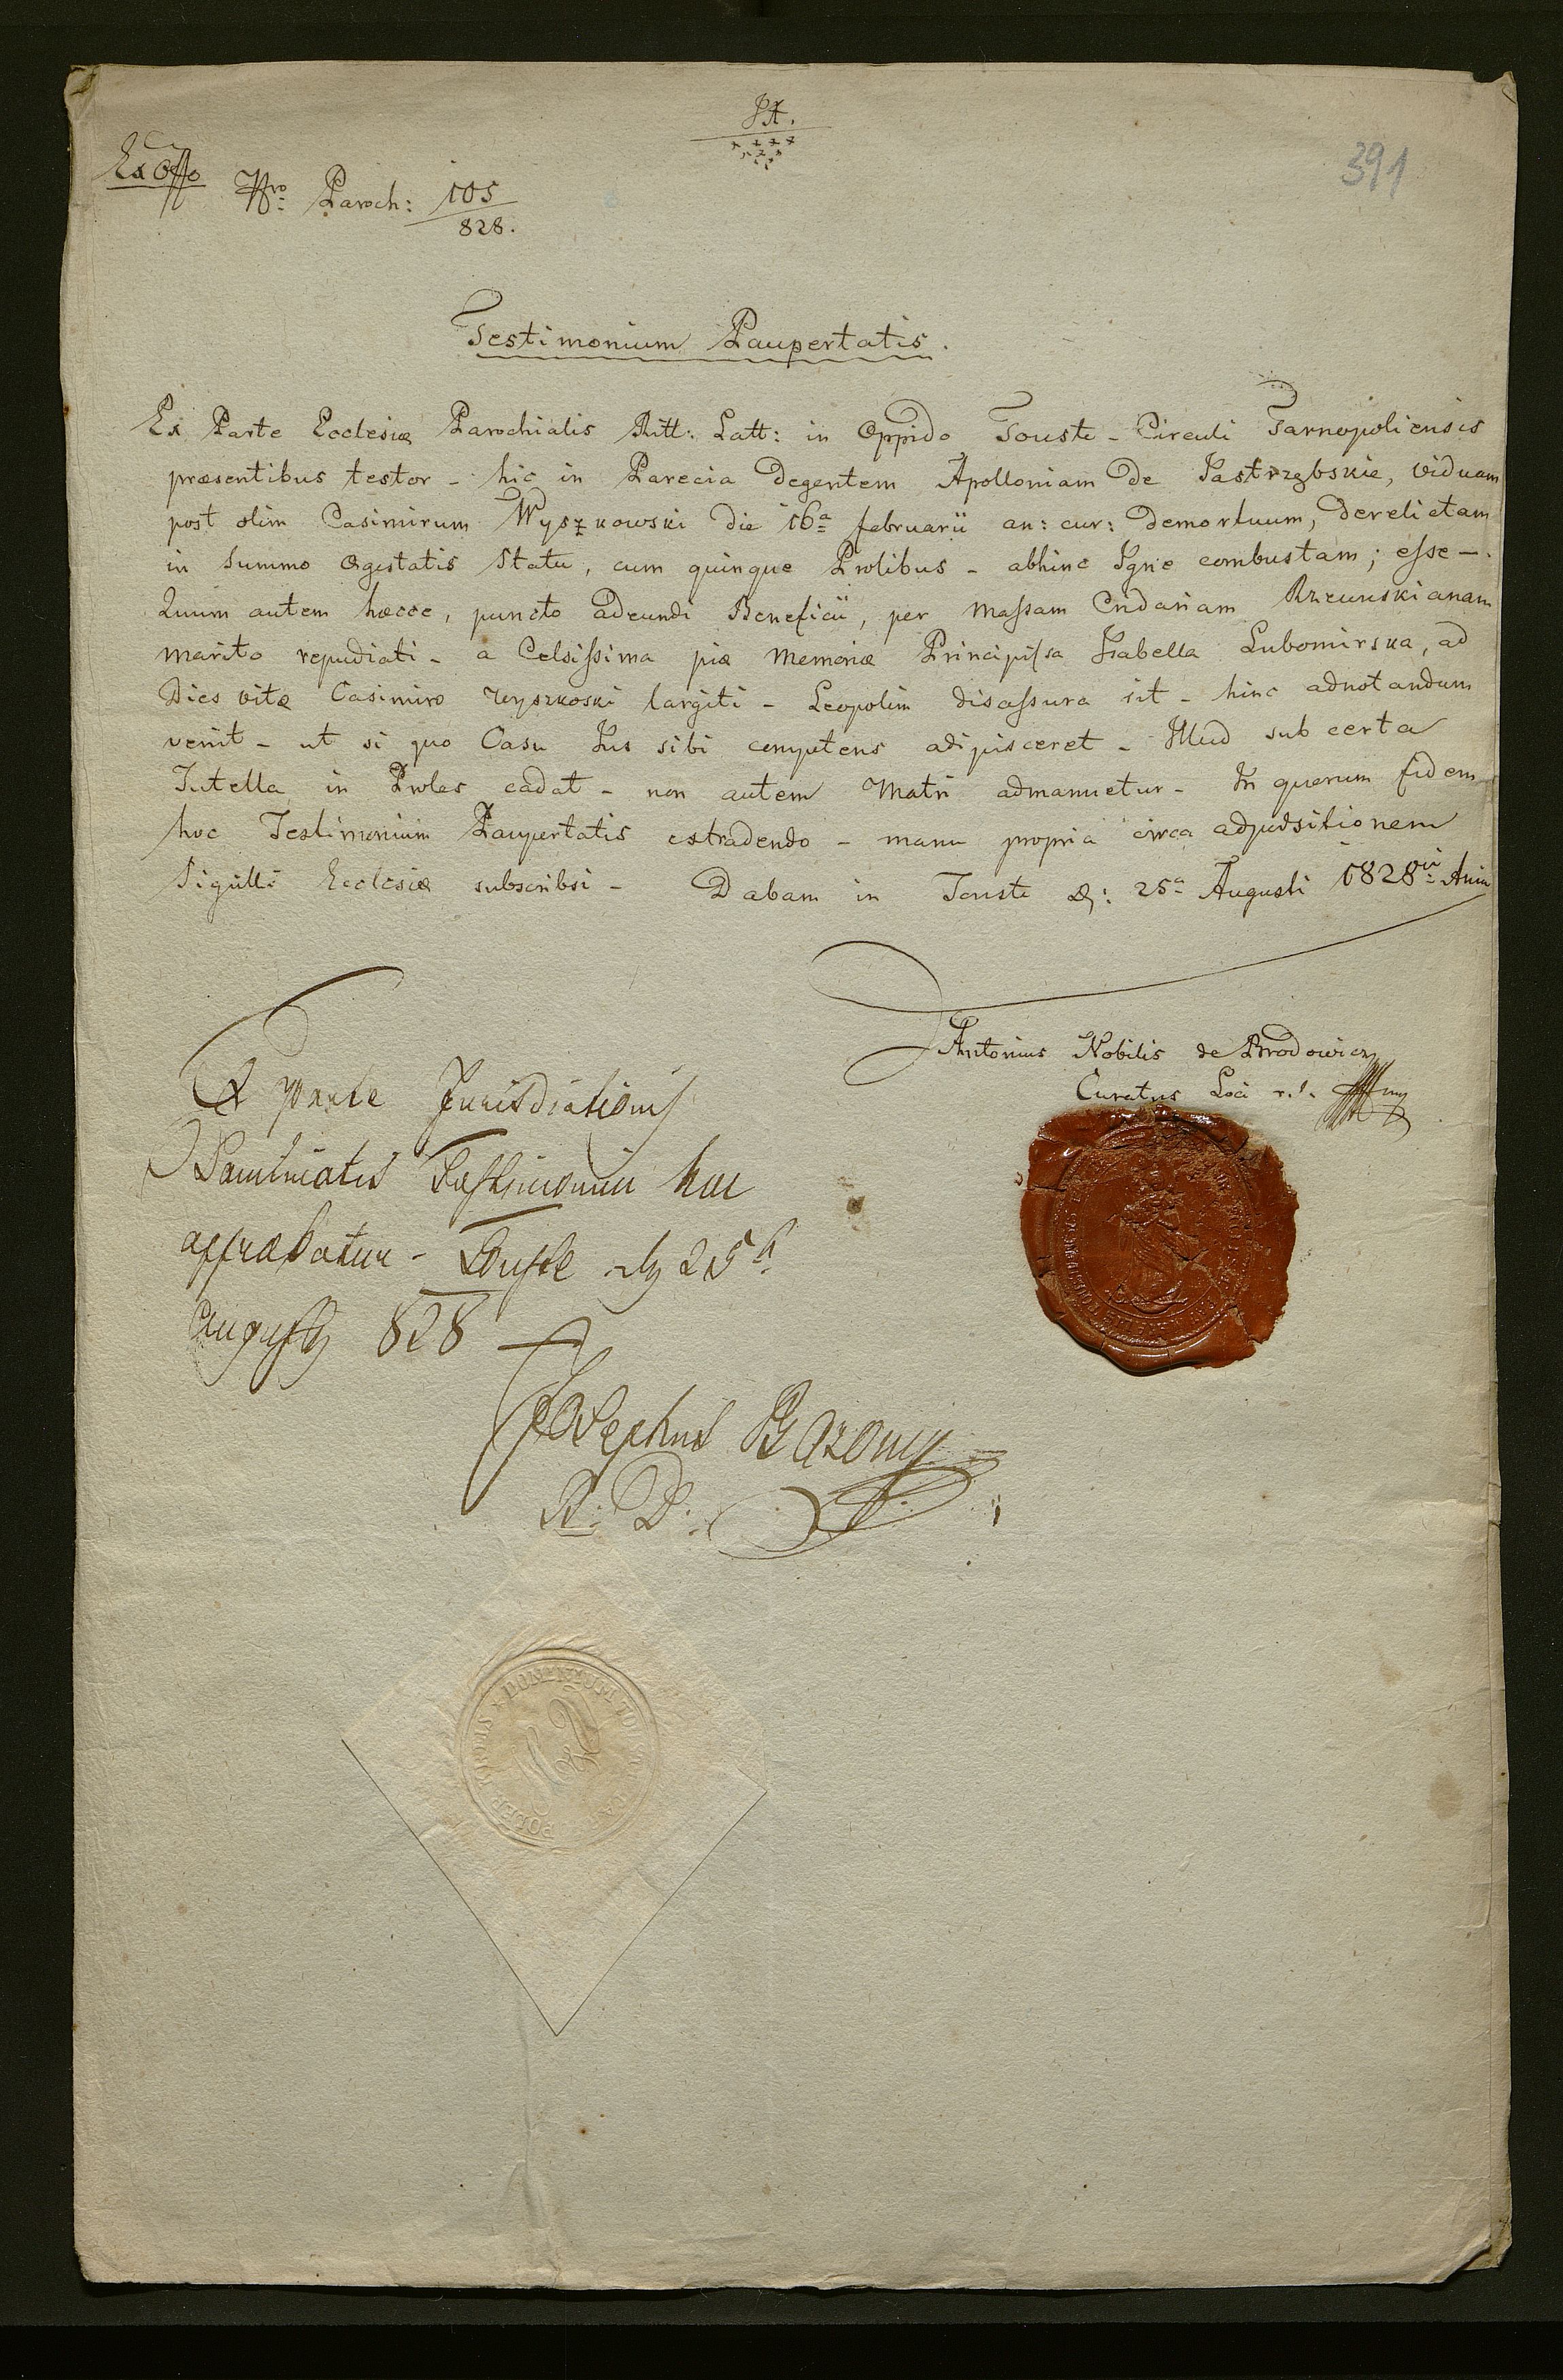 391
Ex Offo
Nro Paroch: 105
828.
Testimonium Paupertatis.
Ex Parte Ecclesiæ Parochialis Ritt: Latt: in Oppido Touste - Circuli Tarnopoliensis
præsentibus testor - hic in Parecia Degentem Apolloniam De Jastrzębskie, viduam
post olim Casimirum Wyszkowski Die 16a februarii an: cur: Demortuum, Derelictam
in Summo Egestatis Statu, cum quinque Prolibus - abhinc Igne combustam; esse -.
Quum autem hæcce, puncto adeundi Beneficii, per Massam Cridariam Rzewuskianam
marito repudiati - a Celsissima piæ Memoriæ Principissa Isabella Lubomirska, ad
Dies vitæ Casimiro Wyszkoski largiti - Leopolim discassura sit - hinc adnotandum
venit - ut si quo Casu Jus sibi competens adipisceret - Illud sub certa
Tutella in Proles cadat - non autem Matri admanuetur - In quorum fidem
hoc Testimonium Paupertatis extradendo - manu propria circa adpressionem
Sigilli Ecclesiæ subscribsi - Dabam in Touste D: 25a Augusti 1828vi Anni
Antonius Nobilis de Brodowicz
Curatus Loci
Ex parte Jurisdictionis
Dominicalis Testimonium hoc
approbatur - Touste dy 25a
Augusty 828
Josephus Bazony
R: D:
DOMINIUM TO